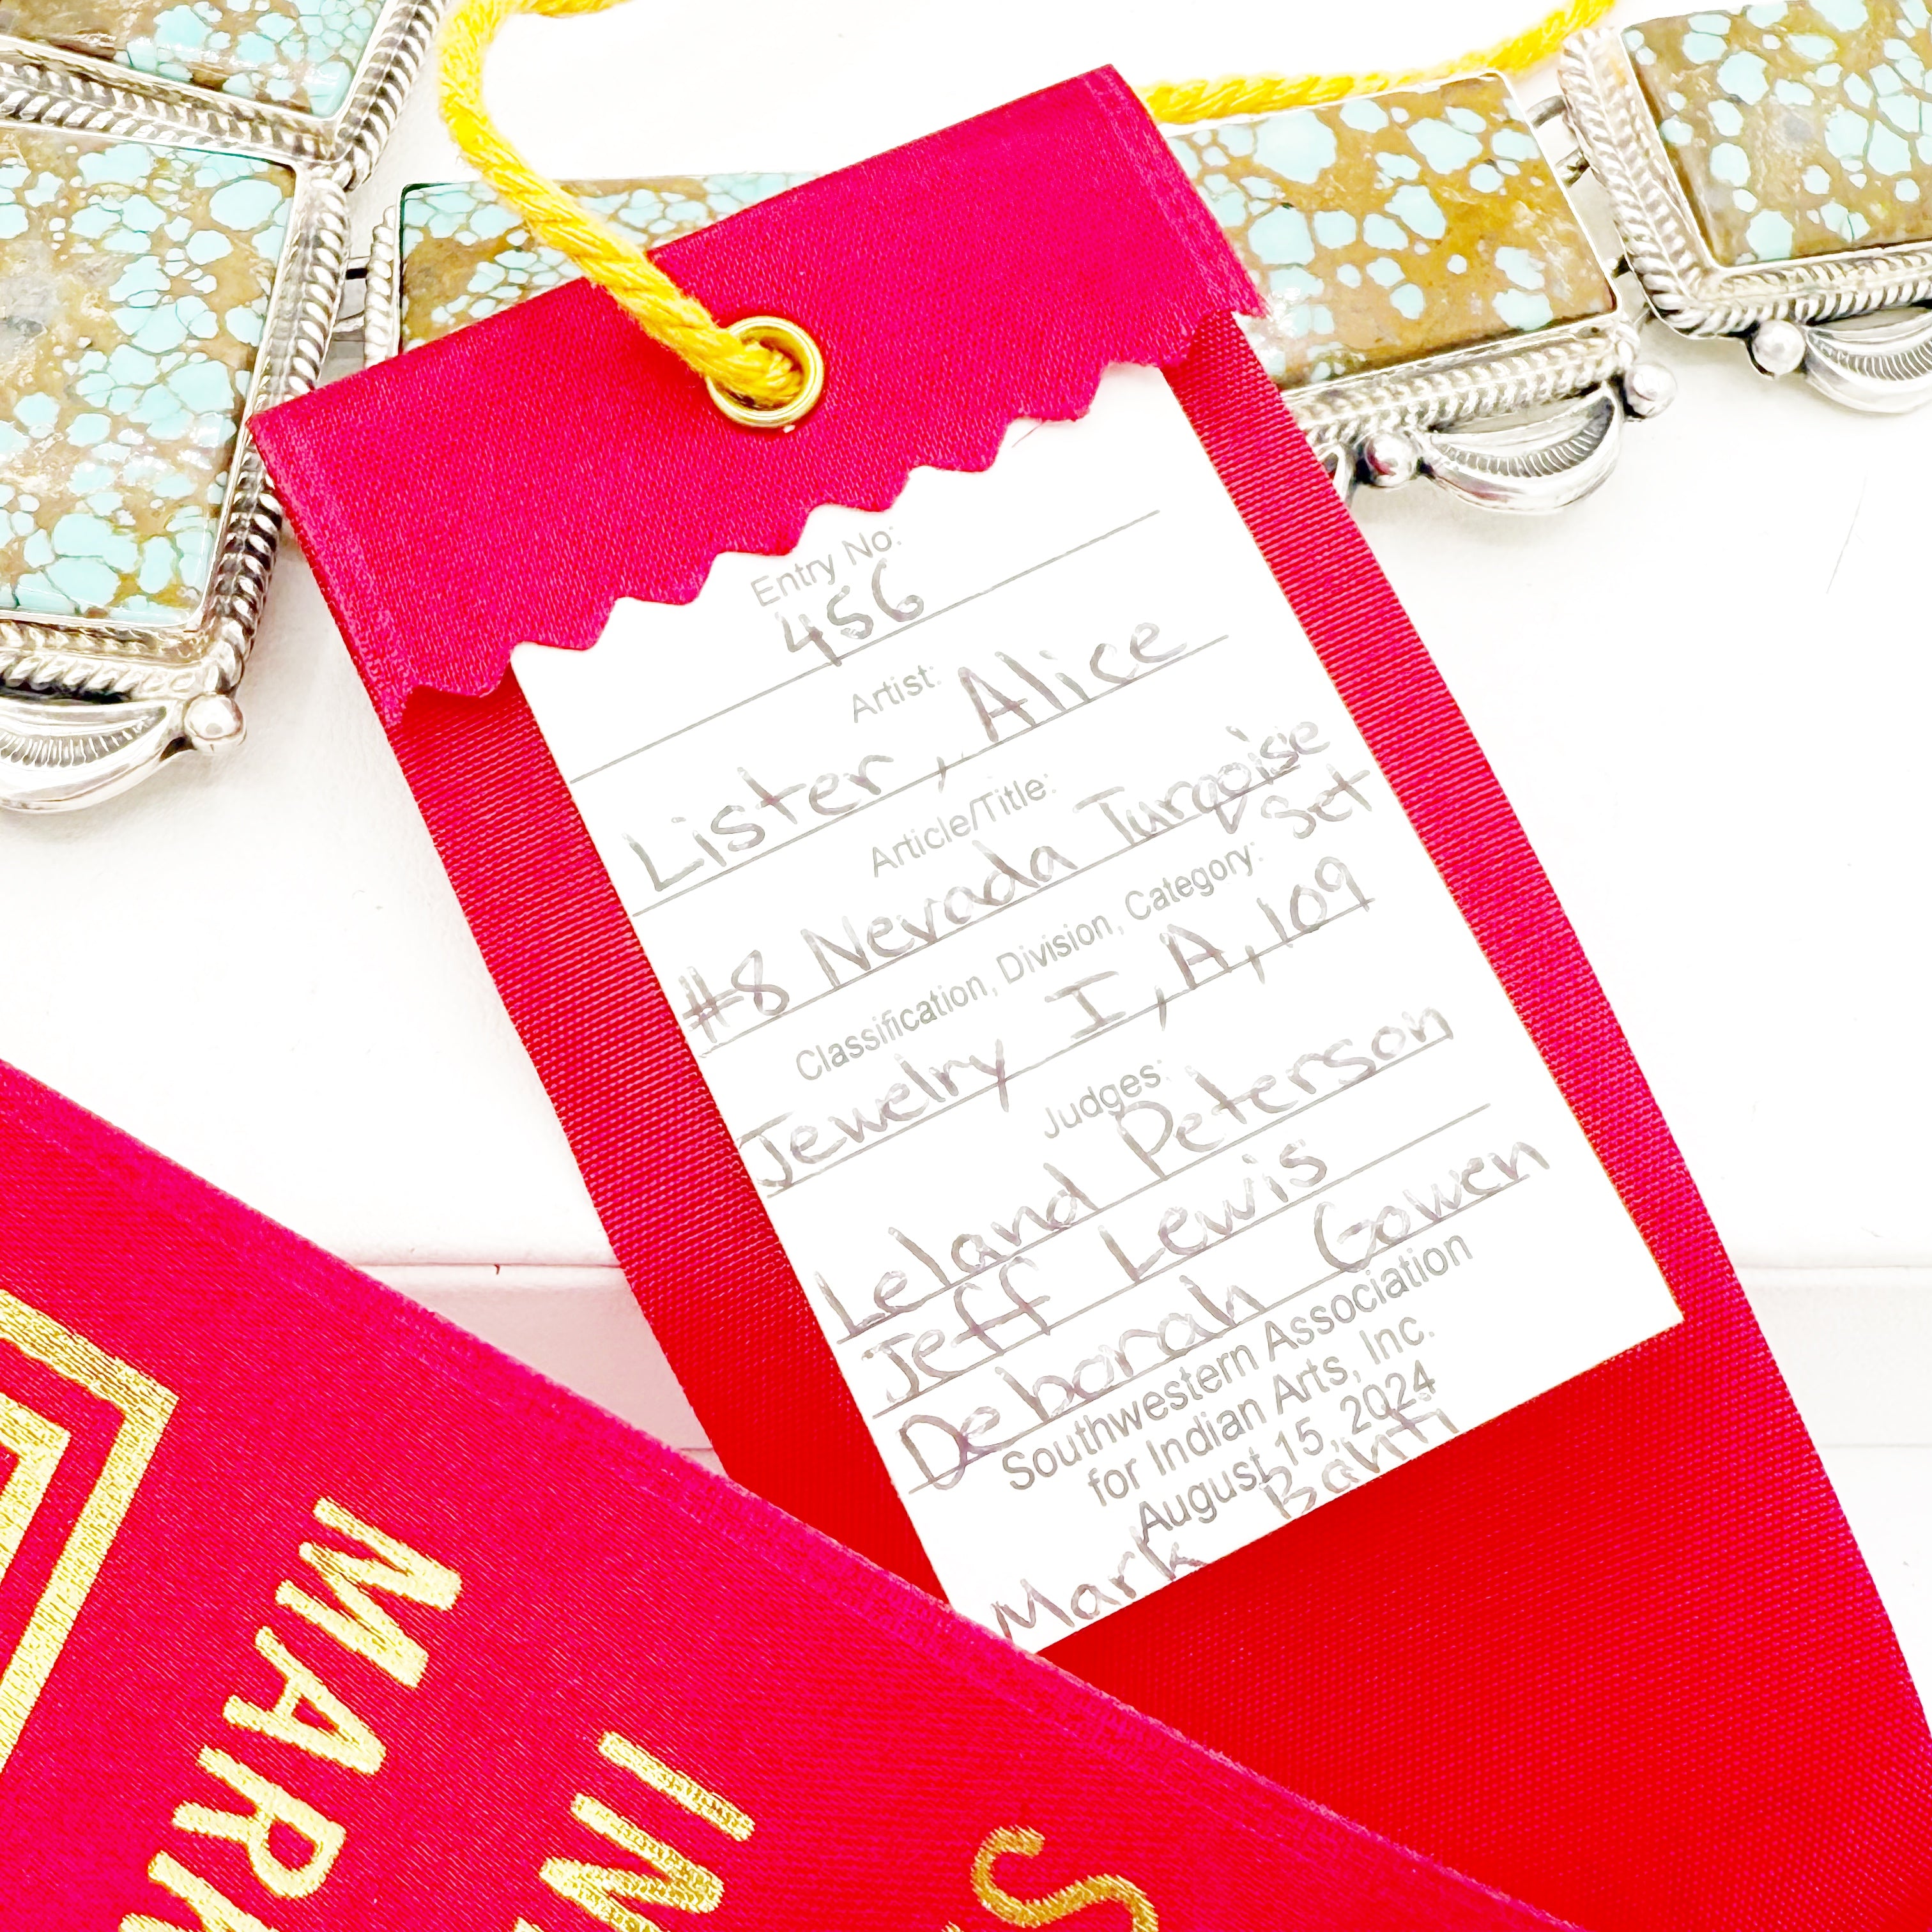 Entry No:
456
Artist:
Lister, Alice
Article/Title:
#8 Nevada Turqoise
Set
Classification, Division, Category:
Jewelry I, A, 109
Judges:
Leland Peterson
Jeff Lewis
Deborah Gowen
Southwestern Association
for Indian Arts, Inc.
August 15, 2024
Mark Banti
MAR
IN
S